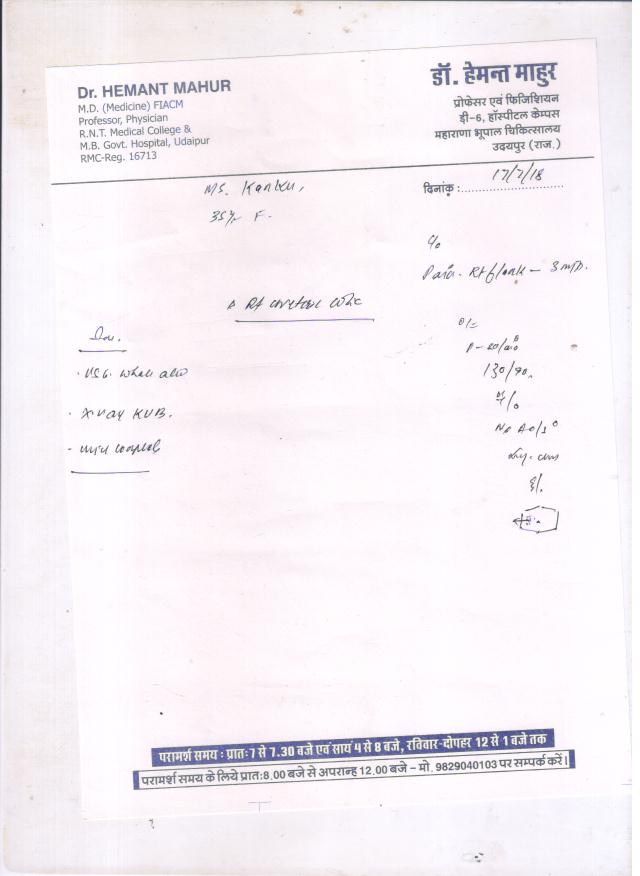 Dr. HEMANT MAHUR
M.D. (Medicine) FIACM
Professor, Physician
R.N.T. Medical College &
M.B. Govt. Hospital, Udaipur
RMC-Reg. 16713
डॉ. हेमन्त माहुर
प्रोफेसर एवं फिजिशियन
डी-6, हॉस्पीटल केम्पस
महाराणा भूपाल चिकित्सालय
उदयपुर (राज.)
दिनांक : 17/7/18
Ms. Kanku,
35yr F.
c/o
Pain - Rt flank - 3 mth.
Rt ureteric colic
Inv.
O/E
· USG. whole abd
130/70
· X-ray KUB.
- urine complete
परामर्श समय : प्रातः 7 से 7.30 बजे एवं सायं 4 से 8 बजे, रविवार-दोपहर 12 से 1 बजे तक
परामर्श समय के लिये प्रात:8.00 बजे से अपरान्ह 12.00 बजे - मो. 9829040103 पर सम्पर्क करें।